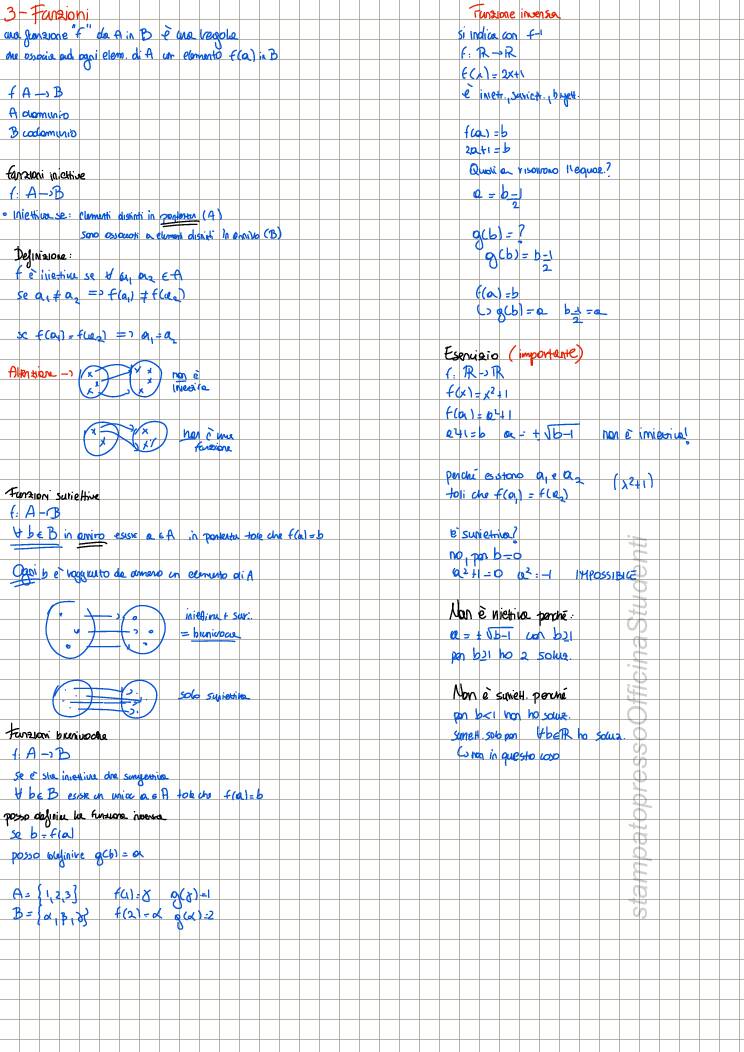 3 - Funzioni
una funzione "f" da A in B è una regola
che associa ad ogni elem. di A un elemento f(a) in B
f A → B
A dominio
B codominio
Funzioni iniettive
f: A → B
• Iniettiva se: elementi distinti in partenza (A)
sono associati a elementi distinti in arrivo (B)
Definizione:
f è iniettiva se ∀ a₁ a₂ ∈ A
se a₁ ≠ a₂ => f(a₁) ≠ f(a₂)
se f(a₁) = f(a₂) => a₁ = a₂
Attenzione →
non è
iniettiva
non è una
funzione
Funzioni suriettive
f: A → B
∀ b ∈ B in arrivo esiste a ∈ A in partenza tale che f(a) = b
Ogni b è raggiunto da almeno un elemento di A
iniettiva + sur.
= biunivoche
solo suriettiva
Funzioni biunivoche
f: A → B
se è sia iniettiva che surgettiva
∀ b ∈ B esiste un unico a ∈ A tale che f(a) = b
posso definire la funzione inversa
se b = f(a)
posso definire g(b) = a
A = {1, 2, 3} f(1) = γ g(γ) = 1
B = {α, β, γ} f(2) = α g(α) = 2
Funzione inversa
si indica con f⁻¹
f: ℝ → ℝ
f(x) = 2x+1
è iniett., suriett., bigett.
f(a) = b
2a+1 = b
Quali a risolvono l'equaz.?
a = b-1/2
g(b) = ?
g(b) = b-1/2
f(a) = b
↳ g(b) = a b-1/2 = a
Esercizio (importante)
f: ℝ → ℝ
f(x) = x²+1
f(a) = a²+1
a²+1 = b a = ±√b-1 non è iniettiva!
perché esistono a₁ e a₂ (x²+1)
tali che f(a₁) = f(a₂)
È suriettiva?
no, per b=0
a²+1=0 a²=-1 IMPOSSIBILE
Non è iniettiva perché:
a = ±√b-1 con b≥1
per b≥1 ho 2 soluz.
Non è suriett. perché
per b<1 non ho soluz.
suriett. solo per ∀b∈ℝ ho soluz.
↳ non in questo caso
stampatopressoOfficinaStudenti